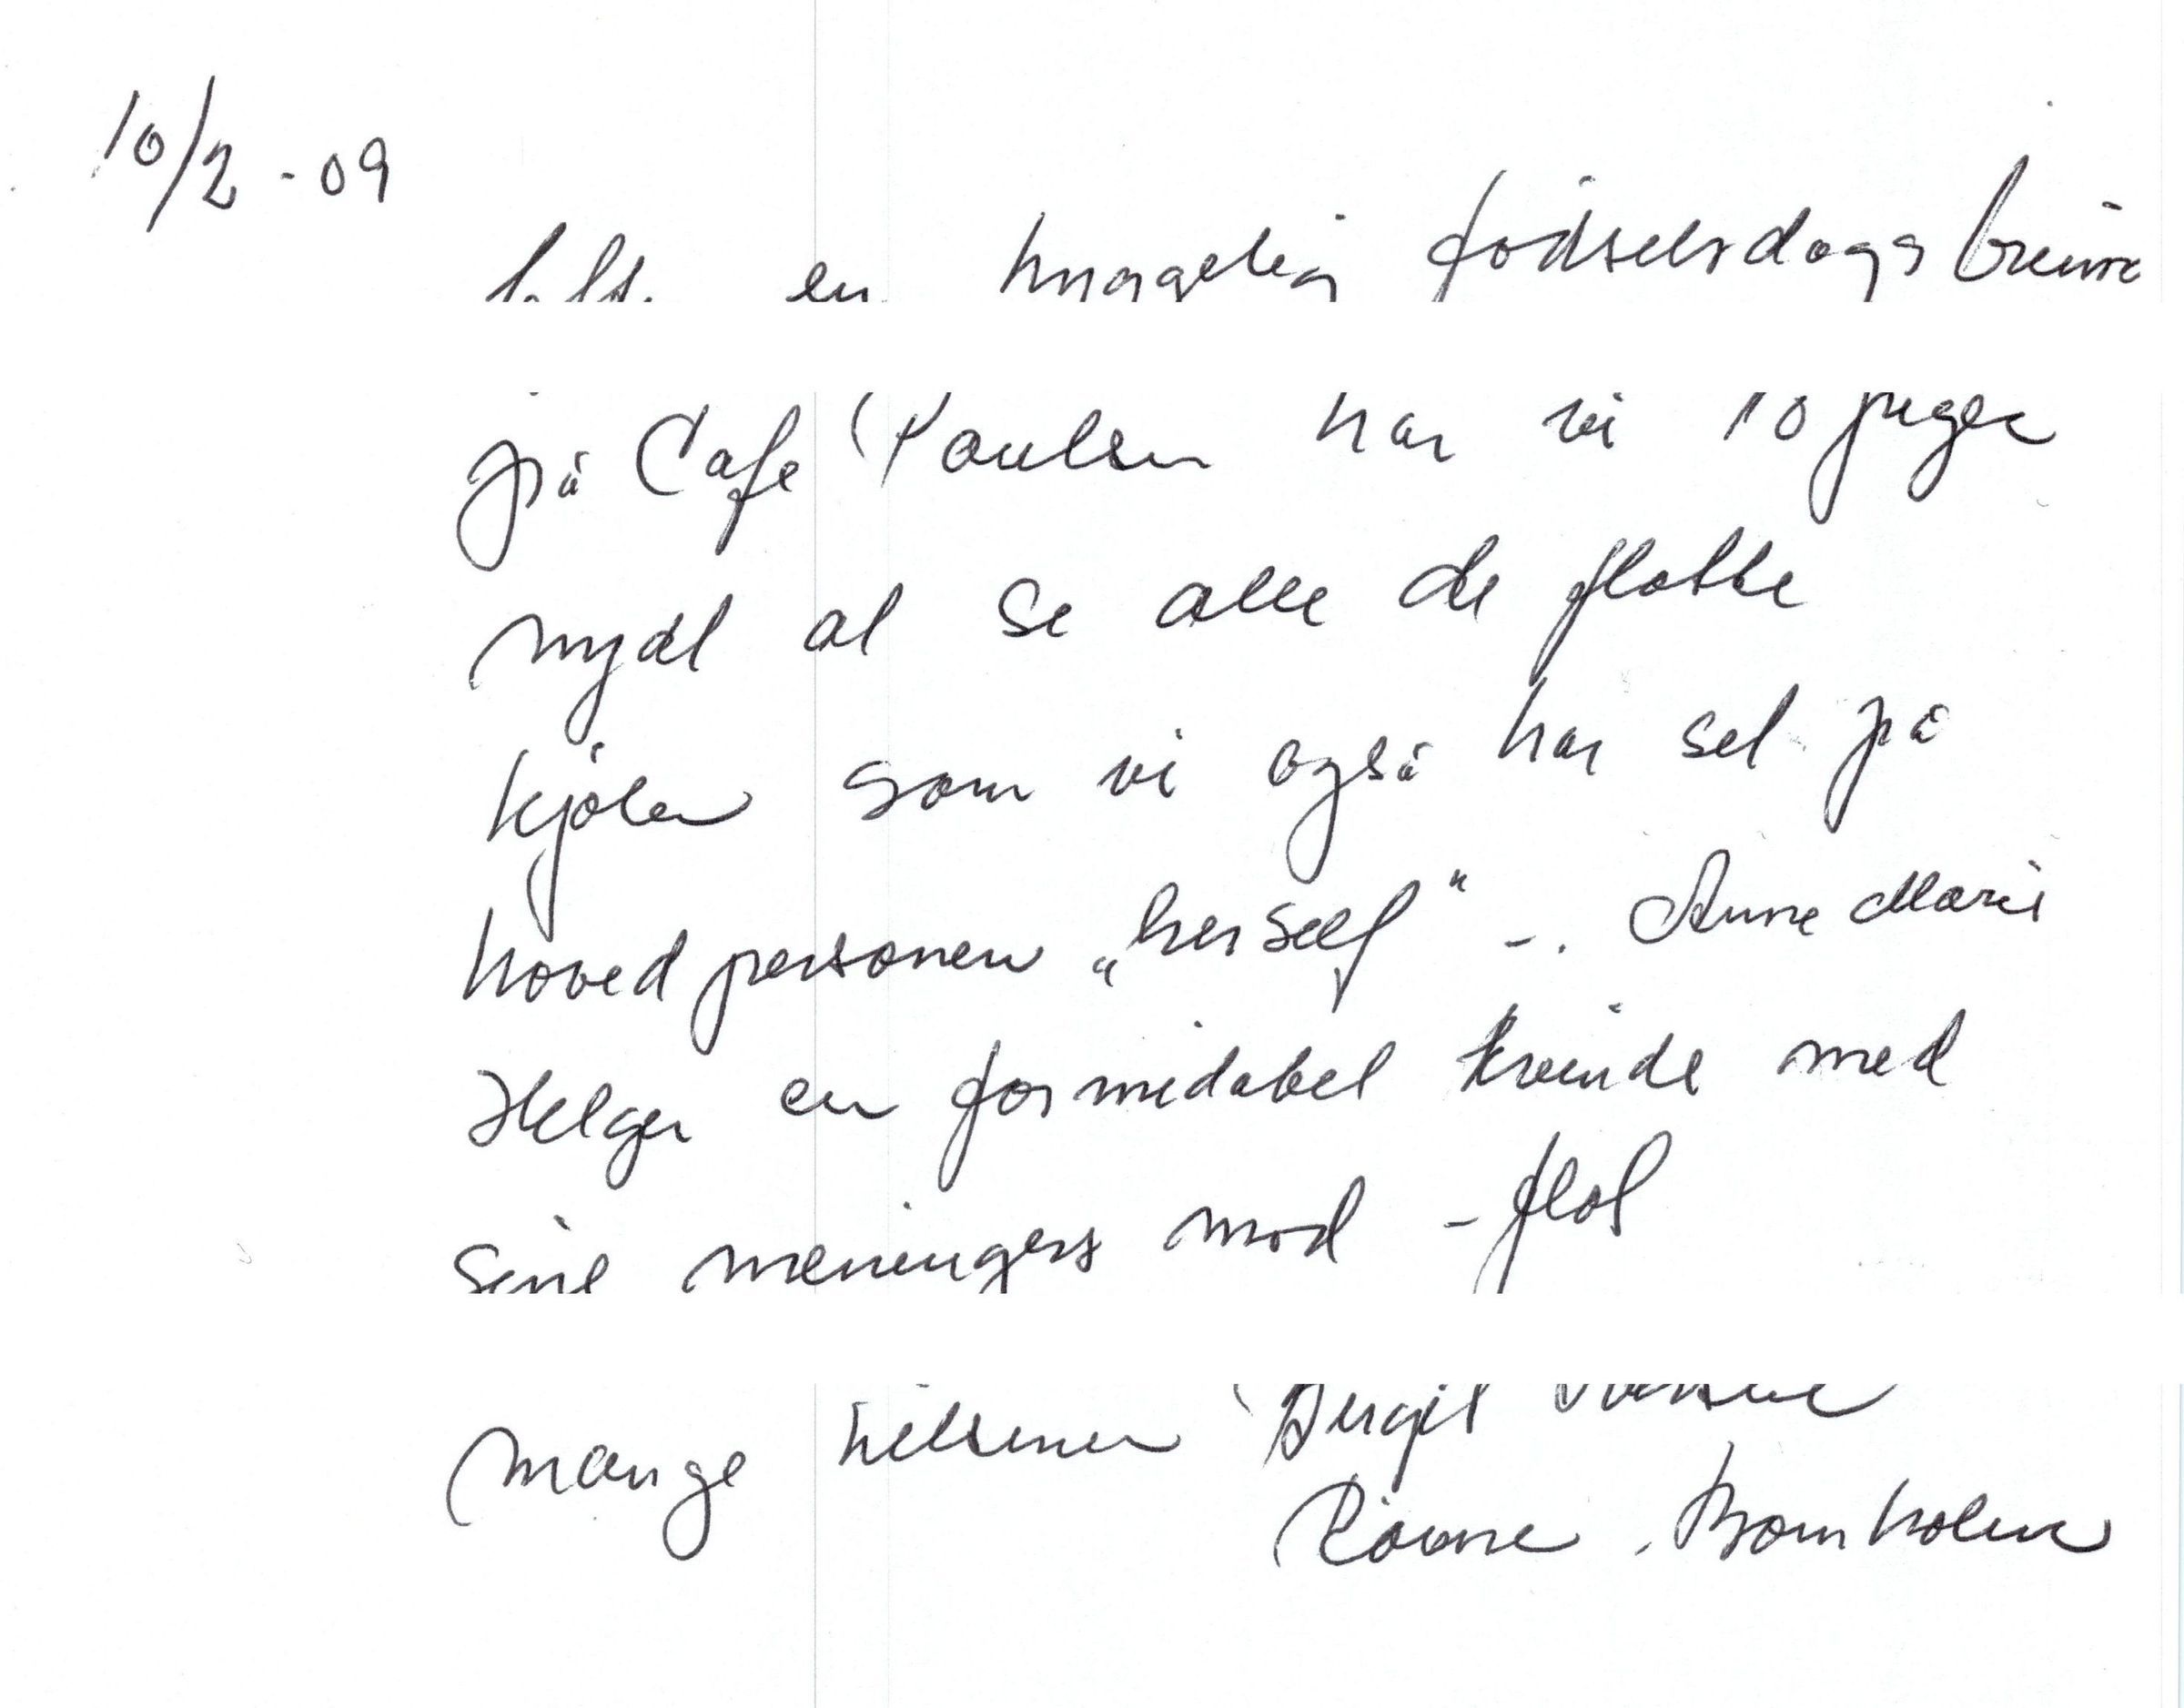 10/2 - 09
en hyggelig fødselsdags
på Cafe Poulsen har vi 10 piger
nydt at se alle de flotte
kjoler som vi også har set på
hovedpersonen „herself“ -. Anne Marie
Helger en formidabel kvinde med
sine meningers mod - flot
mange hilsener Birgit
Rønne, Bornholm